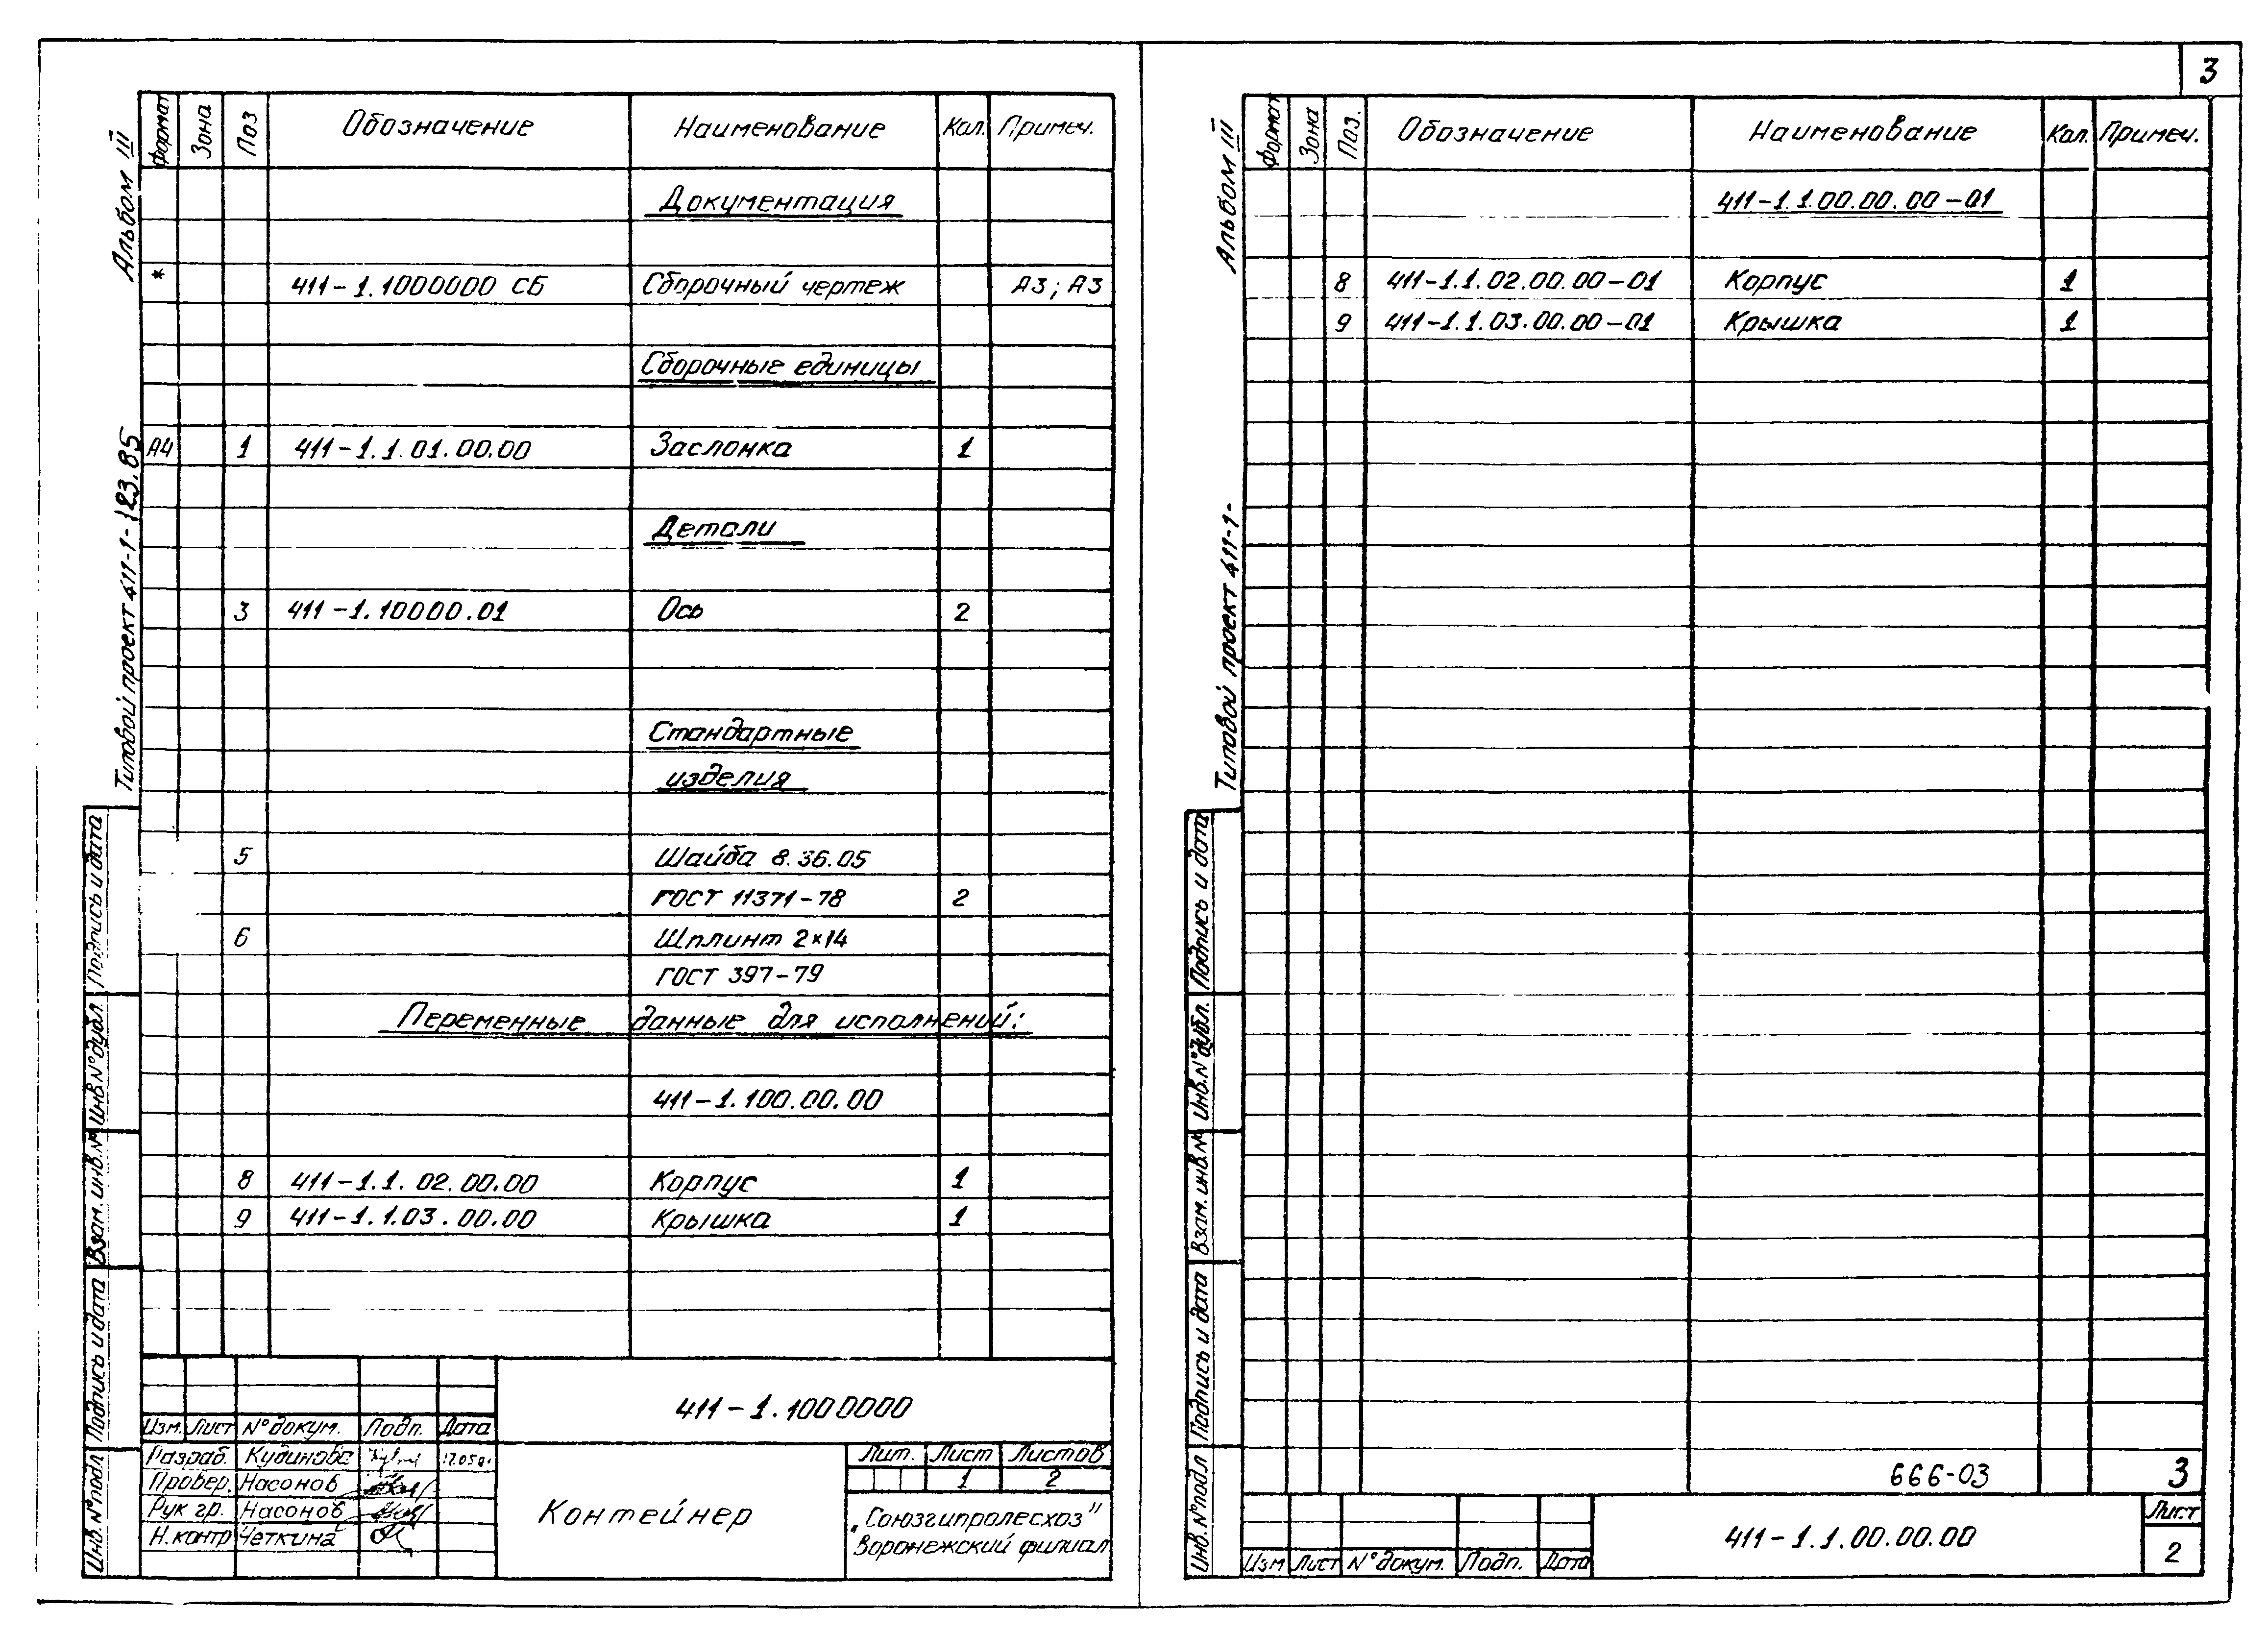 3
Альбом III
Типовой проект 411-1-123.85
Формат Зона Поз Обозначение Наименование Кол. Примеч.
Документация
* 411-1.1000000 СБ Сборочный чертеж А3; А3
Сборочные единицы
А4 1 411-1.1.01.00.00 Заслонка 1
Детали
3 411-1.10000.01 Ось 2
Стандартные
изделия
5 Шайба 8.36.05
ГОСТ 11371-78 2
6 Шплинт 2×14
ГОСТ 397-79
Переменные данные для исполнений:
411-1.100.00.00
8 411-1.1.02.00.00 Корпус 1
9 411-1.1.03.00.00 Крышка 1
Подпись и дата
Инв.№дубл.
Взам.инв.№
Подпись и дата
Инв.№подл
411-1.1000000
Изм. Лист №докум. Подп. Дата
Разраб. Кудинова
Провер. Насонов
Рук гр. Насонов
Н.контр Четкина
Контейнер
Лит. Лист Листов
1 2
„Союзгипролесхоз"
Воронежский филиал
Альбом III
Типовой проект 411-1-
Формат Зона Поз. Обозначение Наименование Кол. Примеч.
411-1.1.00.00.00-01
8 411-1.1.02.00.00-01 Корпус 1
9 411-1.1.03.00.00-01 Крышка 1
Подпись и дата
Инв.№дубл.
Взам.инв.№
Подпись и дата
Инв.№подл
666-03 3
411-1.1.00.00.00
Лист
2
Изм Лист №докум. Подп. Дата